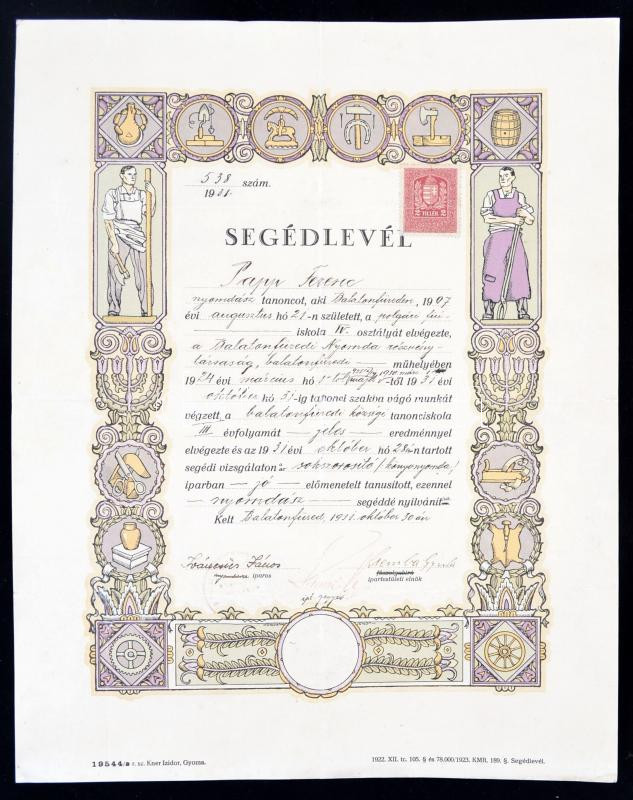 538 szám.
1931.
2 FILLÉR 2
SEGÉDLEVÉL
Papp Ferenc
nyomdász tanoncot, aki Balatonfüreden, 1907
évi augusztus hó 21-n született, a polgári fiú
iskola IV. osztályát elvégezte,
a Balatonfüredi Nyomda részvény
társaság, balatonfüredi műhelyében
1924 évi március hó -től 1931 évi
október hó 31-ig tanonci szakba vágó munkát
végzett, a balatonfüredi községi tanonciskola
III. évfolyamát jeles eredménnyel
elvégezte és az 1931 évi október hó 28án-n tartott
segédi vizsgálaton a sokszorosító /könyvnyomda/
iparban jó előmenetelt tanusított, ezennel
nyomdász segéddé nyilvánít
Kelt Balatonfüred, 1931. október 30 án
János
iparos
ipartestületi elnök
19544/a r. sz. Kner Izidor, Gyoma.
1922. XII. tc. 105. § és 78.000/1923. KMR. 189. §. Segédlevél.